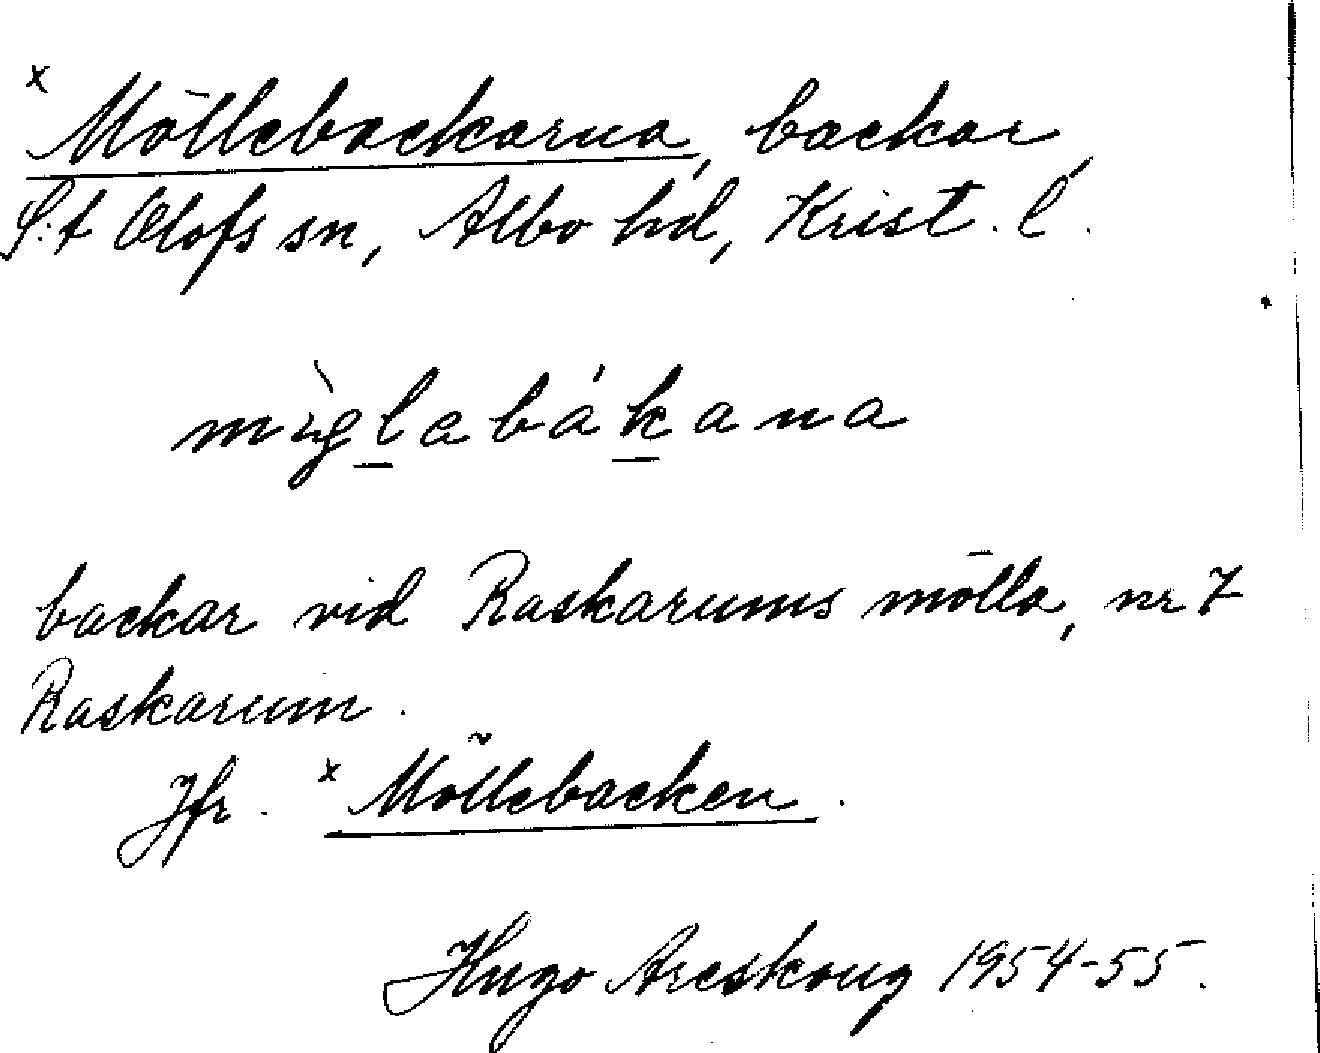 x Möllebackarna, backar,
S:t Olofs sn, Albo hd, Krist. l.
backar vid Raskarums mölla, nr 7
Raskarum.
Jfr. x Möllebacken.
Hugo Areskoug 1954-55.